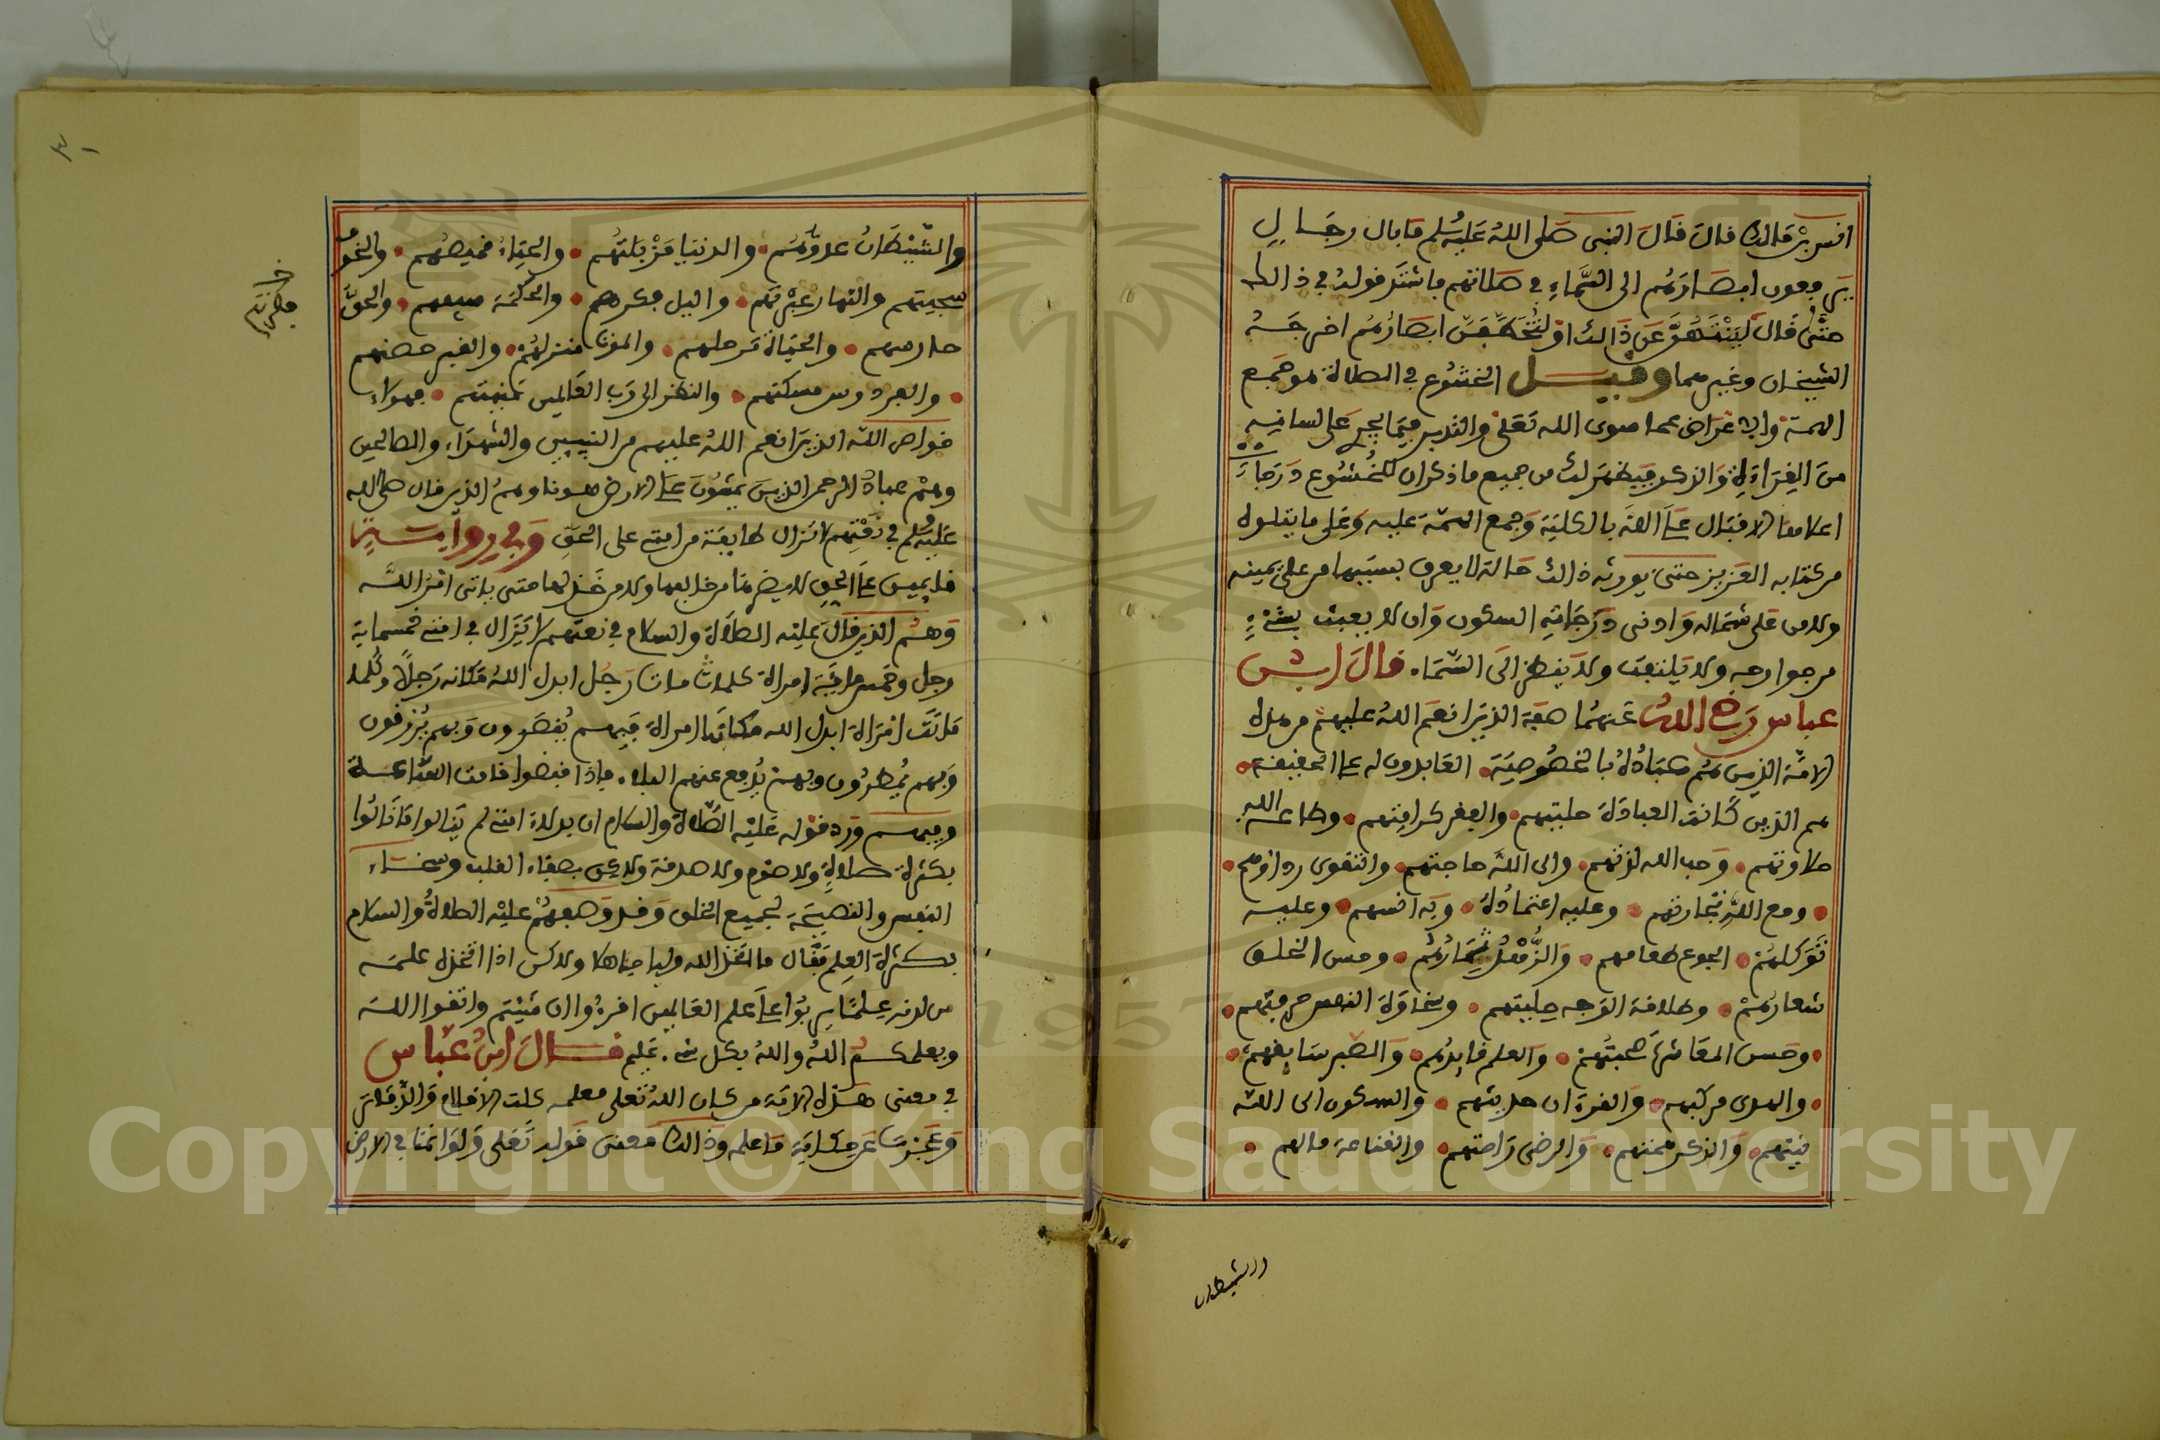 انس بن مالك قال قال النبي صلى الله عليه وسلم ما بال رجال
يرفعون ابصارهم الى السماء في صلاتهم فاشتد قوله في ذالك
حتى قال لينتهن عن ذالك او لتخطفن ابصارهم اخرجه
الشيخان وغيرهما وقيل الخشوع في الصلاة هو جمع
الهمة والاعراض عما سوى الله تعلى والتدبر فيما يجري على لسانه
من القراءة والذكر فيظهر لك من جميع ما ذكر ان للخشوع درجات
اعلاها الاقبال على الله بالكلية وجمع الهمة عليه وعلى ما يتلوه
من كتابه العزيز حتى يورثه ذالك حالة لا يعرف بسببها من على يمينه
ولا من على شماله وادنى درجاته السكون وان لا يعبث بشيء
من جوارحه ولا يلتفت ولا ينظر الى السماء قال ابن
عباس رضي الله عنهما صفة الذين انعم الله عليهم من هذه
الامة الذين هم عباده بالخصوصية العابدون له على الحقيقة
هم الذين كانت العبادة حليتهم والفقر كرامتهم وطاعة الله
حلاوتهم وحب الله لذتهم والى الله حاجتهم والتقوى زادهم
ومع الله تجارتهم وعليه اعتمادهم وبه انسهم وعليه
توكلهم الجوع طعامهم والزهد ثمارهم وحسن الخلق
شعارهم وطلاقة الوجه حليتهم وسخاوة النفس حرفتهم
وحسن المعاشرة صحبتهم والعلم قايدهم والصبر سايقهم
والهدى مركبهم والقرءان حديثهم والسكون الى الله
نيتهم والذكر همتهم والرضى راحتهم والقناعة مالهم
والشيطان
٣١
والشيطان عدوهم والدنيا مزبلتهم والحياء قميصهم والخوف
سجيتهم والنهار عبرتهم واليل فكرهم والحكمة سيفهم والحق
حارسهم والحياة مرحلهم والموت منزلهم والقبر حصنهم
والفردوس مسكنهم والنظر الى رب العالمين منيتهم فهؤلاء
خواص الله الذين انعم الله عليهم من النبيين والشهداء والصالحين
وهم عباد الرحمن الذين يمشون على الارض هونا وهم الذين قال صلى الله
عليه وسلم في نعتهم لا تزال طايفة من امتي على الحق وفي رواية
قايمين على الحق لا يضرهم من خالفها ولا من خذلها حتى ياتي امر الله
وهم الذين قال عليه الصلاة والسلام في نعتهم لا يزال في امتي خمسماية
رجل وخمس ماية امراة كلما مات رجل ابدل الله مكانه رجلا وكلما
ماتت امراة ابدل الله مكانها امراة فبهم ينصرون وبهم يرزقون
وبهم يمطرون وبهم يدفع عنهم البلاء فاذا قبضوا قامت الساعة
وفيهم ورد قوله عليه الصلاة والسلام ان بدلاء امتي لم ينالوا ما نالوا
بكثرة صلاة ولا صوم ولا صدقة ولاكن بصفاء القلب وسخاء
النفس والنصيحة لجميع الخلق وقد وصفهم عليه الصلاة والسلام
بكثرة العلم فقال ما اتخذ الله وليا جاهلا ولاكن اذا اتخذه علمه
من لدنه علما علم العالمين اقرءوا ان شيتم واتقوا الله
ويعلمكم الله والله بكل شيء عليم قال ابن عباس
في معنى هذه الامة من كان الله تعلى معلمه كلت الاقلام
وعجزت عن ما علمه وذالك معنى قوله تعلى ولو انما في الارض